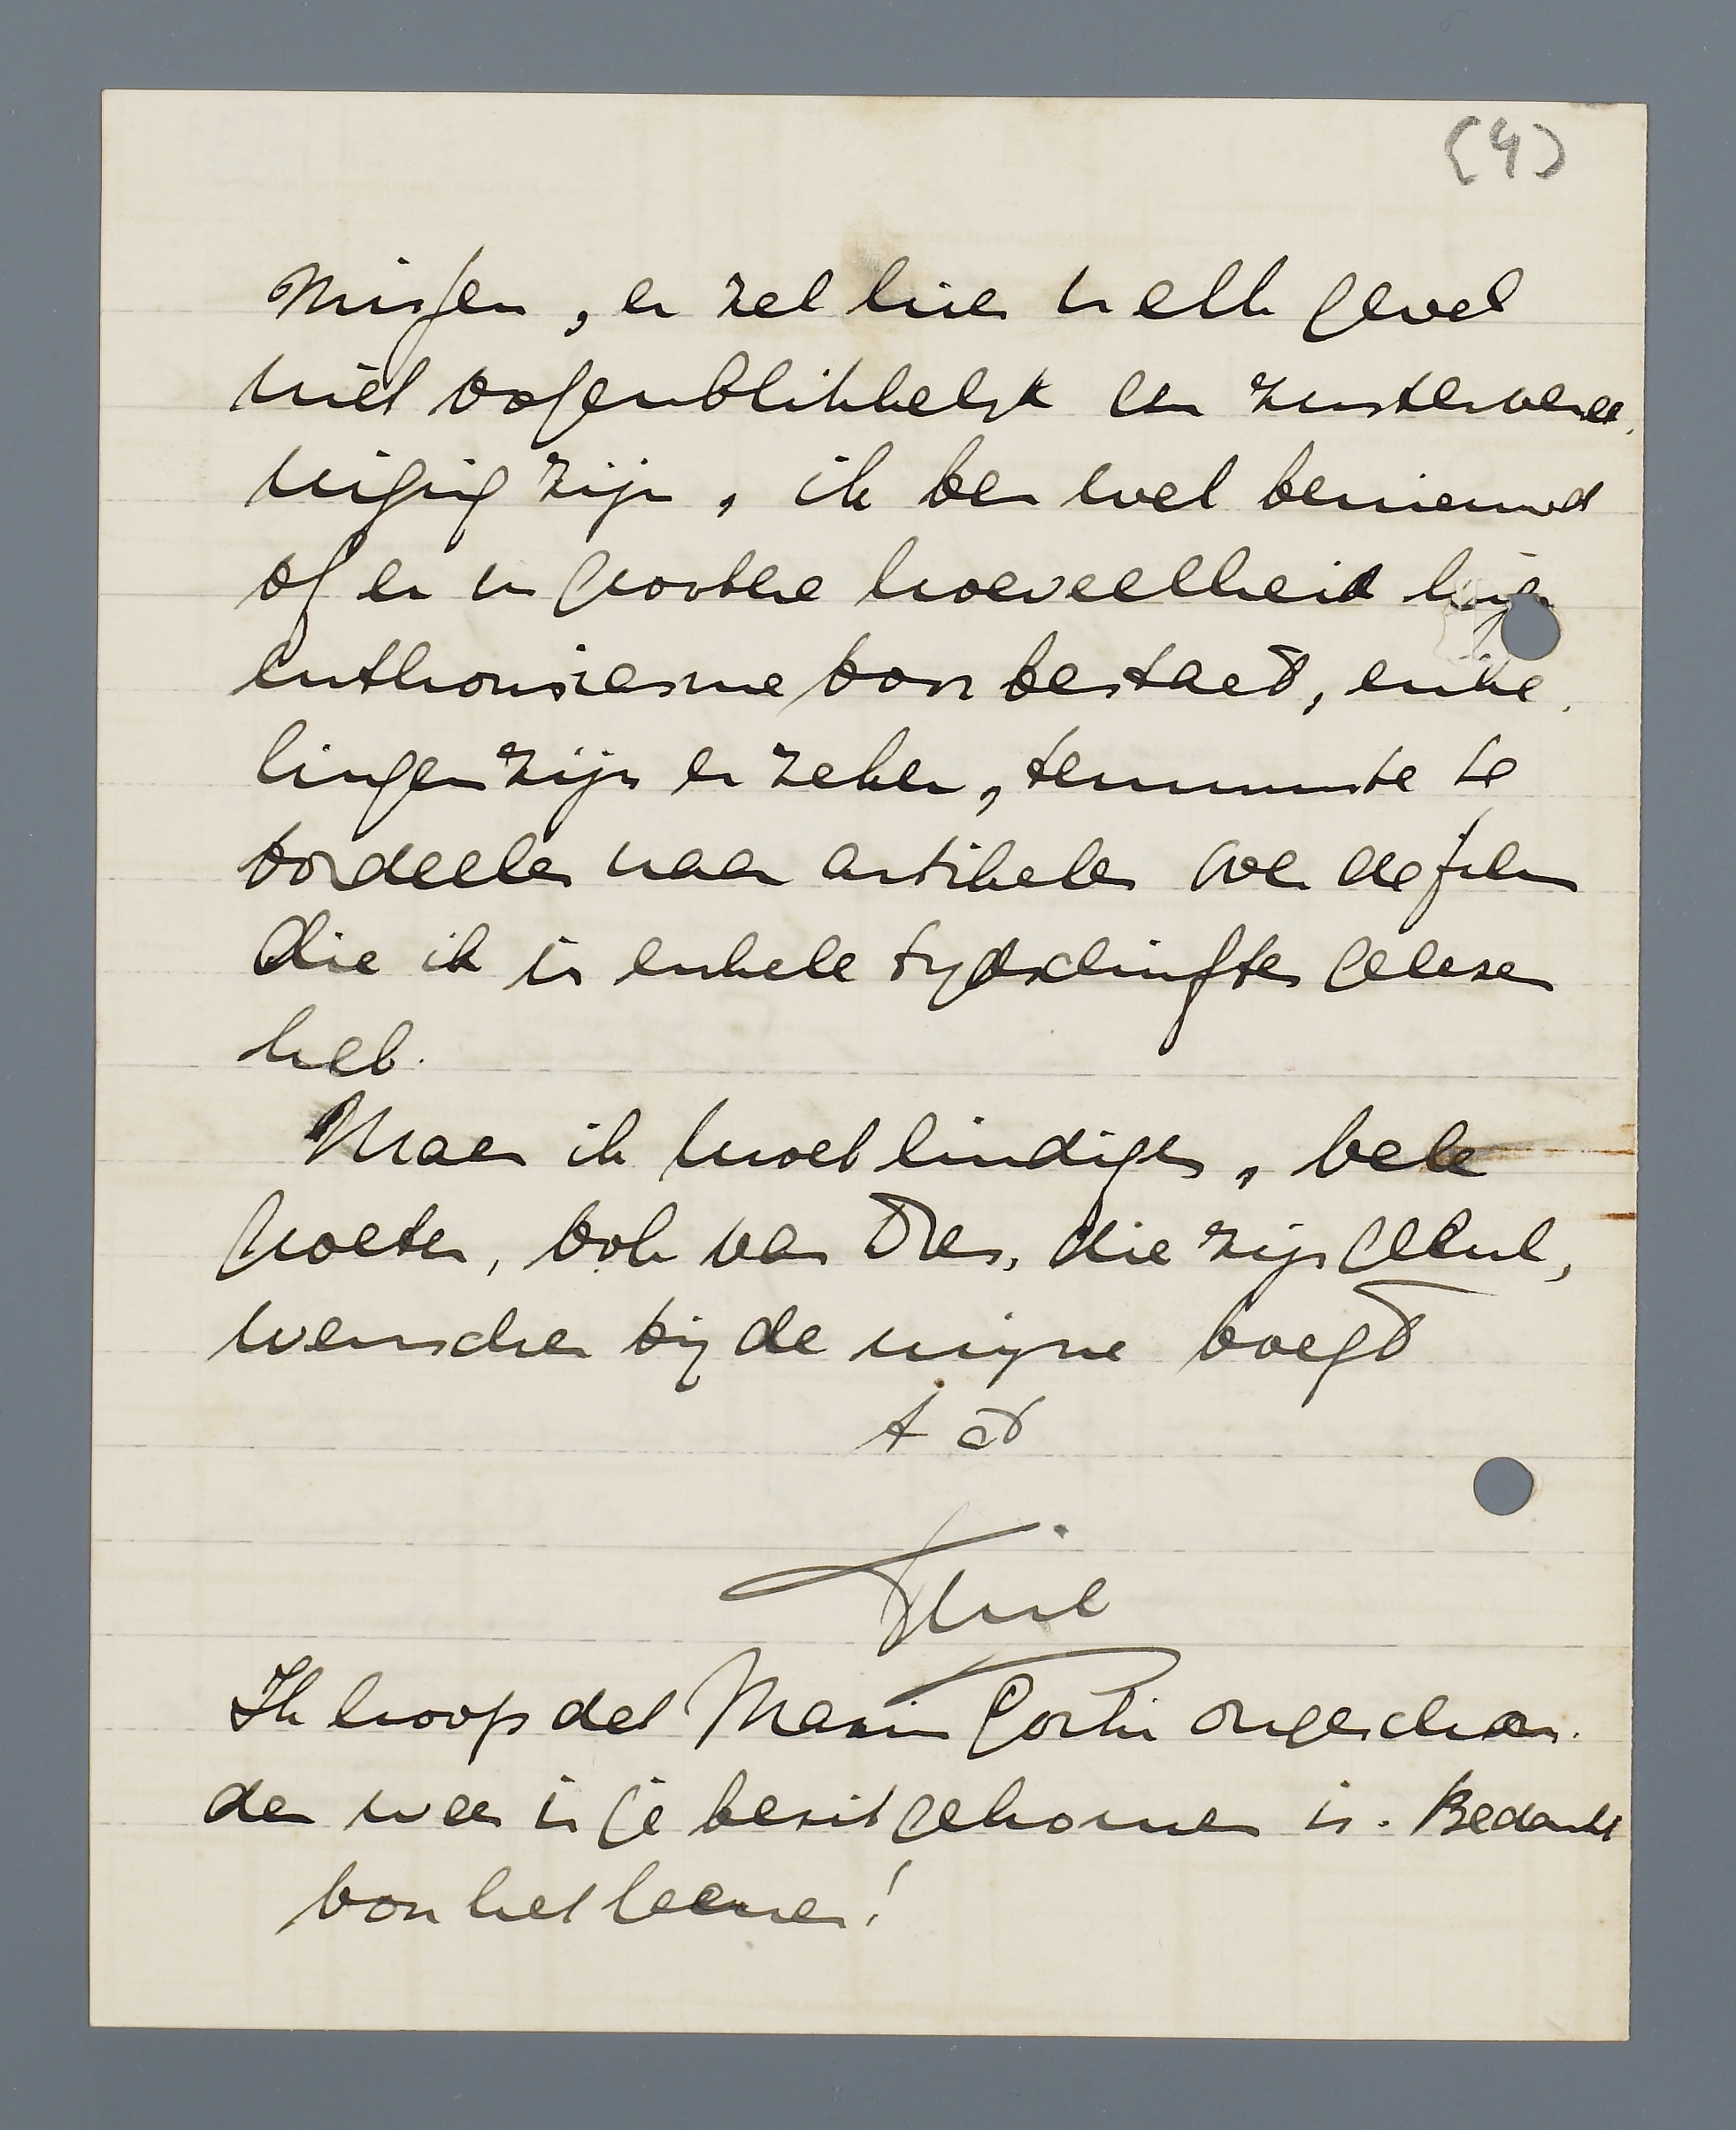 (4)
Mis̀sen, er zal hier in elk geval
niet oogenblikkelijk een zusterveree-
niging zijn, ik ben wel benieuwd
of er in groote hoeveelheid hier
enthousiasme voor bestaat, enke-
lingen zijn er zeker, tenminste te
oordeelen naar artikelen over de film
die ik in enkele tijdschriften gelezen
heb.
Maar ik moet eindigen, vele
groeten, ook van Dres, die zijn geluk-
wenschen bij de mijne voegt
t à t
Ik hoop dat Maxim Gorki ongeschon-
den weer in je bezit gekomen is. Bedankt
voor het leenen!